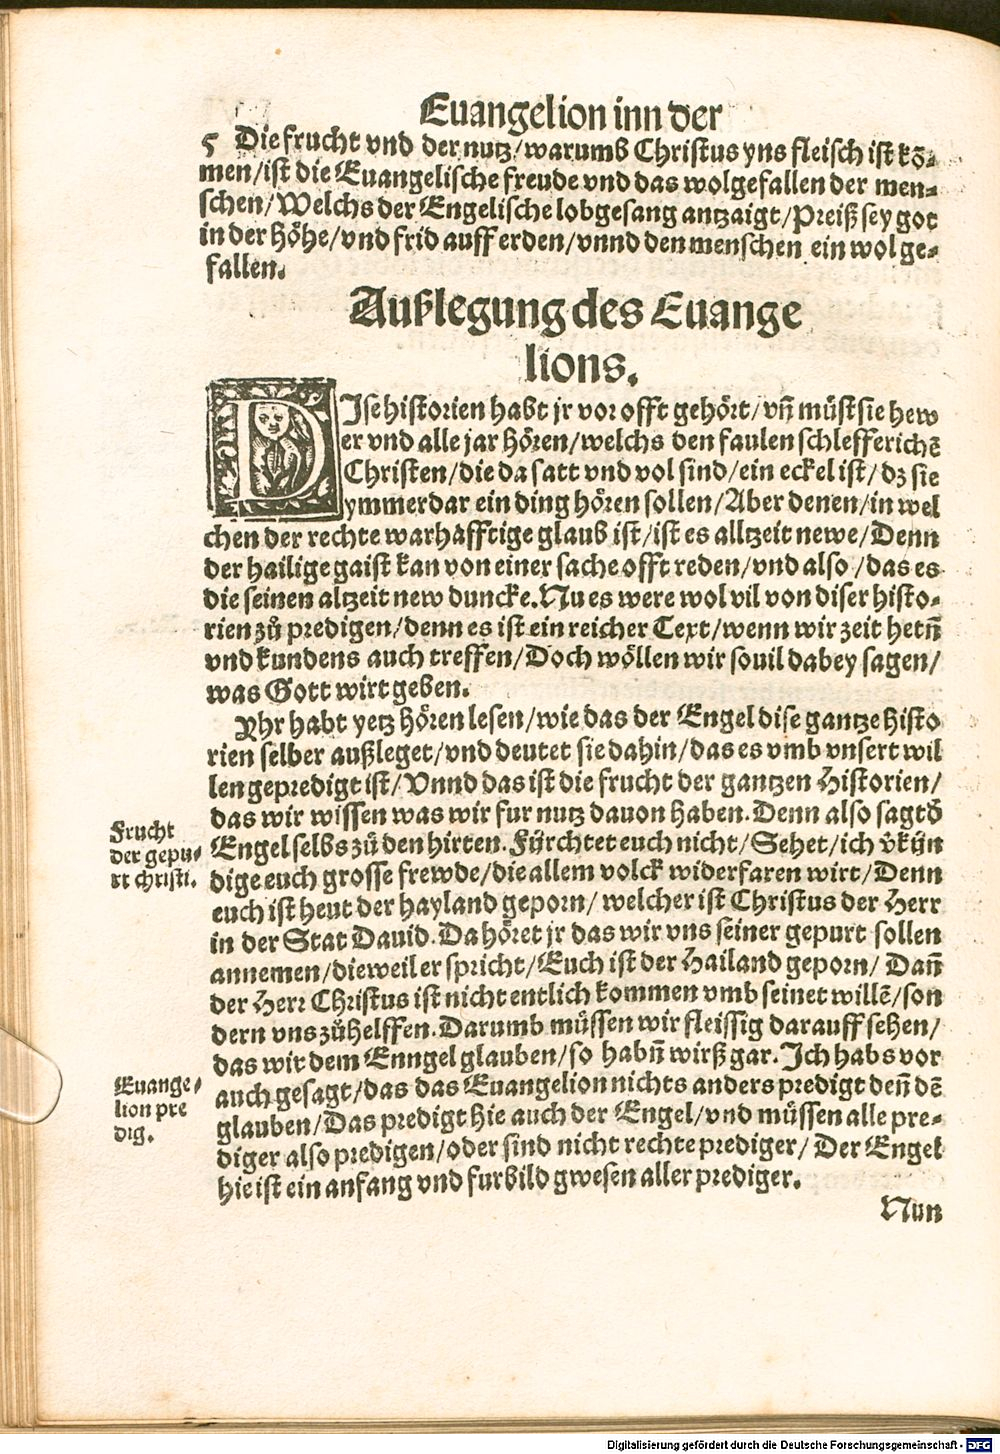 Euangelion inn der
5 Die frucht vnd der nutz/warumb Christus yns fleisch ist kō⸗
men/ist die Euangelische freude vnd das wolgefallen der men⸗
schen/Welchs der Engelische lobgesang antzaigt/Preiß sey got
in der höhe/vnd frid auff erden/vnnd den menschen ein wolge⸗
fallen.
Außlegung des Euange
lions.
DIse historien habt jr vor offt gehört/vn̄ müst sie hew
er vnd alle jar hören/welchs den faulen schlefferichē
Christen/die da satt vnd vol sind/ein eckel ist/dz sie
ymmerdar ein ding hören sollen/Aber denen/in wel
chen der rechte warhafftige glaub ist/ist es alltzeit newe/Denn
der hailige gaist kan von einer sache offt reden/vnd also/das es
die seinen altzeit new duncke. Nu es were wol vil von diser histo⸗
rien zů predigen/denn es ist ein reicher Text/wenn wir zeit hetn̄
vnd kundens auch treffen/Doch wöllen wir souil dabey sagen/
was Gott wirt geben.
Yhr habt yetz hören lesen/wie das der Engel dise gantze histo
rien selber außleget/vnd deutet sie dahin/das es vmb vnsert wil
len gepredigt ist/Vnnd das ist die frucht der gantzen Historien/
das wir wissen was wir fur nutz dauon haben. Denn also sagt d̄
Engel selbs zů den hirten. Fürchtet euch nicht/Sehet/ich v̄kün
dige euch grosse frewde/die allem volck widerfaren wirt/Denn
euch ist heut der hayland geporn/welcher ist Christus der Herr
in der Stat Dauid. Da höret jr das wir vns seiner gepurt sollen
annemen/dieweil er spricht/Euch ist der Hailand geporn/Dan̄
der Herr Christus ist nicht entlich kommen vmb seinet willē/son
dern vns zůhelffen. Darumb müssen wir fleissig darauff sehen/
das wir dem Enngel glauben/so habn̄ wirß gar. Ich habs vor
auch gesagt/das das Euangelion nichts anders predigt den̄ dē
glauben/Das predigt hie auch der Engel/vnd müssen alle pre⸗
diger also predigen/oder sind nicht rechte prediger/Der Engel
hie ist ein anfang vnd furbild gwesen aller prediger.
Nun
Frucht
der gepu⸗
rt christi.
Euange⸗
lion pre
dig.
Digitalisierung gefördert durch die Deutsche Forschungsgemeinschaft - DFG